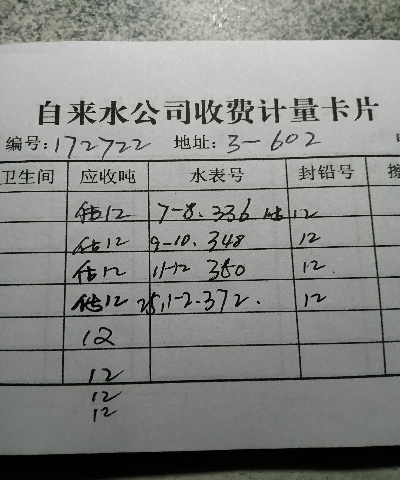 自来水公司收费计量卡片
编号:172722 地址:3-602
卫生间 应收吨 水表号 封铅号
估12 7-8. 336 估 12
估12 9-10. 348 12
估12 11-12 360 12
估12 25,1-2.372. 12
12
12
12
12